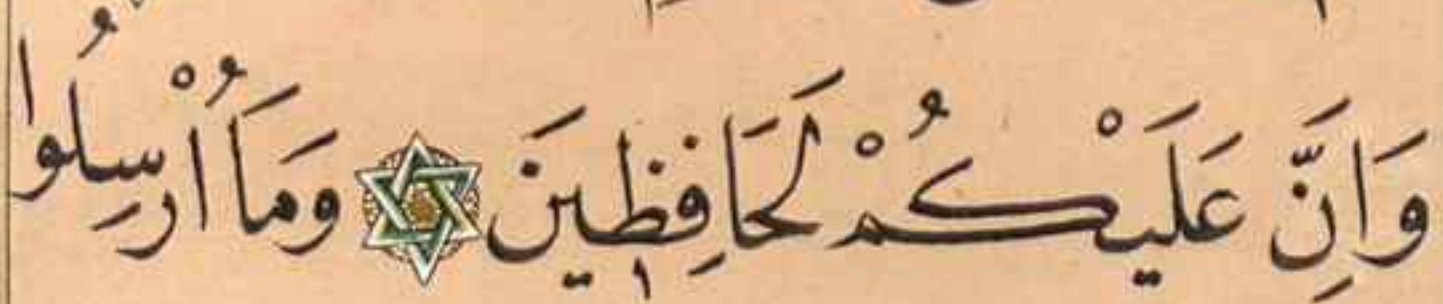 وَاِنَّ عَلَيْكُمْ لَحَافِظِينَ وَمَا أُرْسِلُوا